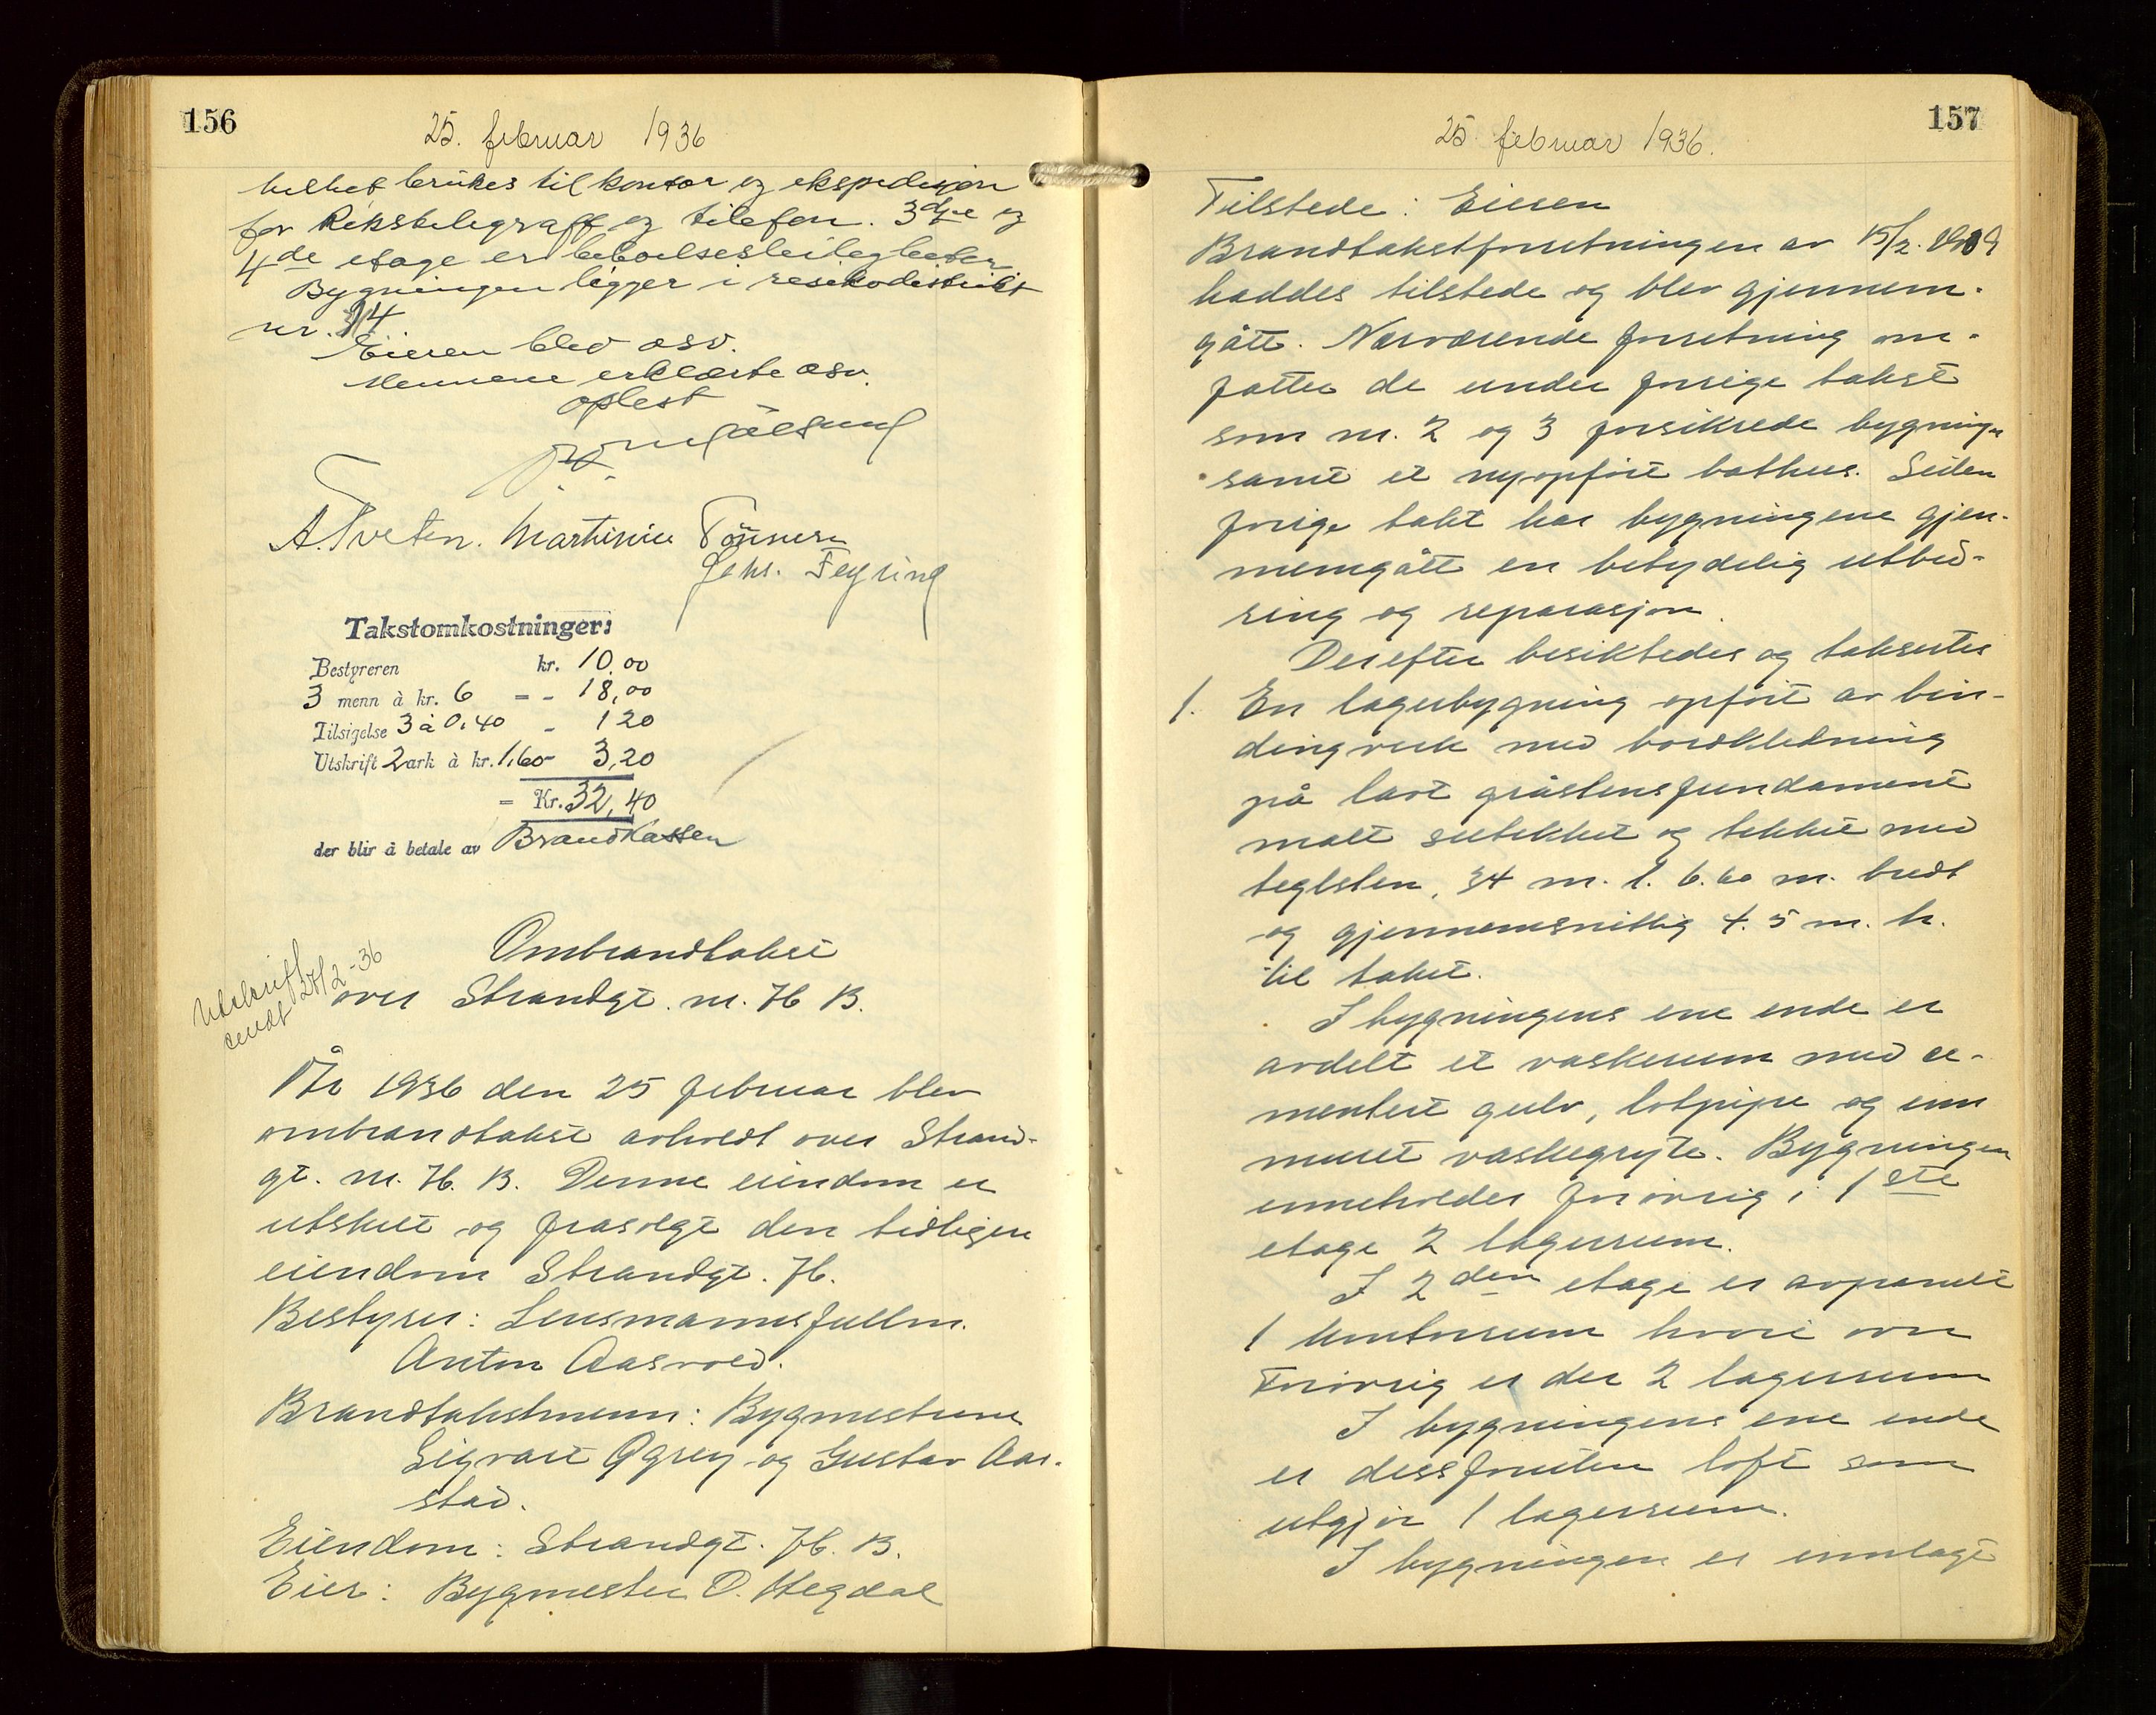 156
25. februar 1936
helhet brukes til kontor og ekspedisjon
for Rikstelegraff og telefon. 3dje og
4de etage er beboelsesleiligheter
Bygningen ligger i resikodistrikt
nr. 14.
Eieren blev osv.
Mennene erklærte osv.
oplest
A. Tveten. Martinius Tönnesen
Johs. Feyling
Takstomkostninger:
Bestyreren kr. 10.00
3 menn à kr. 6 = - 18,00
Tilsigelse 3 à 0,40 - 1 20
Utskrift 2 ark à kr. 1,60 - 3,20
= Kr. 32,40
der blir å betale av Brandkassen
Utskrift
sendt 27/2-36
Ombrandtakst
over Strandgt. nr. 76 B.
År 1936 den 25 februar blev
ombrandtakst avholdt over Strand-
gt. nr. 76. B. Denne eiendom er
utskilt og frasolgt den tidligere
eiendom Strandgt. 76.
Bestyrer: Lensmannsfullm.
Anton Aasvold.
Brandtakstmenn: Bygmestrene
Sigvart Ogrey og Gustav Aar-
stad.
Eiendom: Strandgt. 76. B.
Eier: Bygmester O. Hegdal
157
25 februar 1936.
Tilstede: Eieren
Brandtakstforretningen av 15/2. 1909
haddes tilstede og blev gjennem-
gått. Nærværende forretning om-
fatter de under forrige takst
som nr. 2 og 3 forsikrede bygninger
samt et nyopført bathus. Siden
forrige takt har bygningene gjen-
nemgått en betydelig utbed-
ring og reparasjon.
Derefter besiktedes og taksertes
1. En lagerbygning opført av bin-
dingverk med bordkledning
på lavt gråstensfundament
malt sutekket og tekket med
teglsten, 34 m. l. 6.60 m. bredt
og gjennemsnittlig 4.5 m. h.
til taket.
I bygningens ene ende er
avdelt et vaskerum med ce-
mentert gulv, lotpipe og inn
muret vaskegryte. Bygningen
inneholder forøvrig i 1ste
etage 2 lagerrum.
I 2den etage er avpanelt
1 kontorrum hvori ovn
Forøvrig er der 2 lagerrum
I bygningens ene ende
er dessforuten loft som
utgjør 1 lagerrum.
I bygningen er innlagt